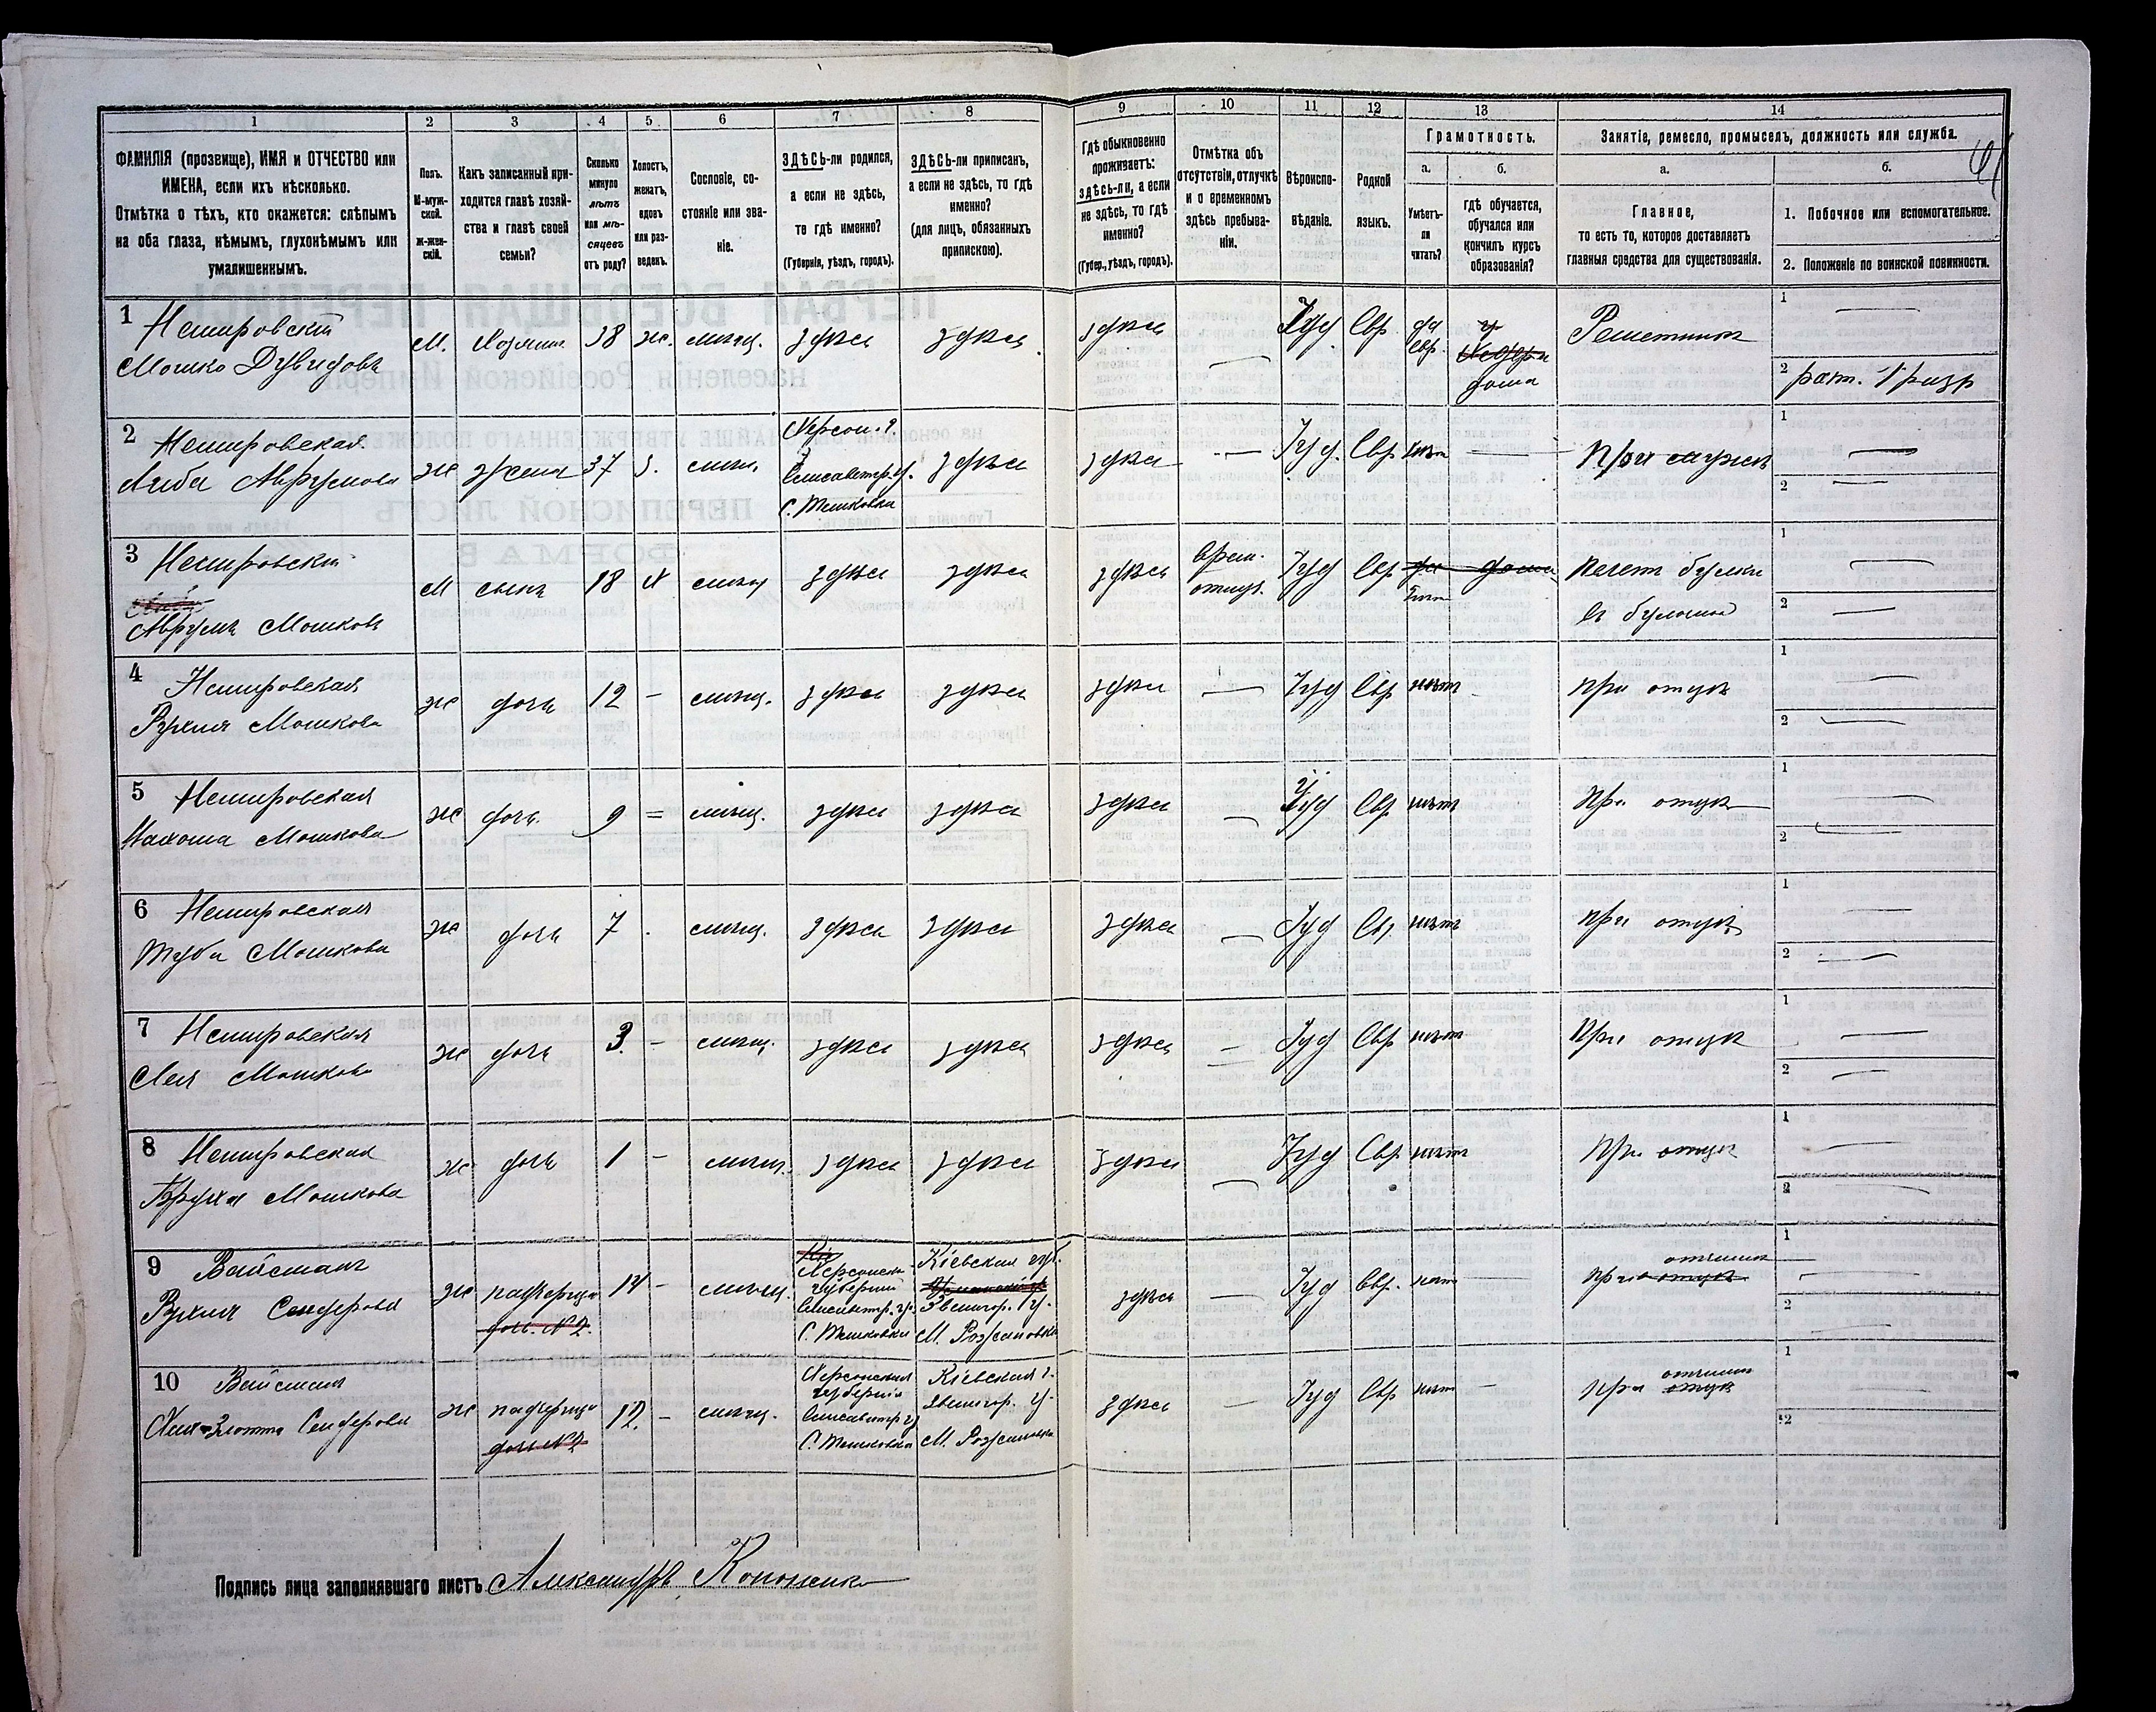 1 2 3 4 5 6 7 8 9 10 11 12 13 14
ФАМИЛІЯ (прозвище), ИМЯ и ОТЧЕСТВО или
ИМЕНА, если ихъ нѣсколько.
Отмѣтка о тѣхъ, кто окажется: слѣпымъ
на оба глаза, нѣмымъ, глухонѣмымъ или
умалишеннымъ.
Полъ.
М-муж-
ской.
Ж-жен-
скій.
Какъ записанный при-
ходится главѣ хозяй-
ства и главѣ своей
семьи?
Сколько
минуло
лѣтъ
или мѣ-
сяцевъ
отъ роду?
Холостъ,
женатъ,
вдовъ
или раз-
веденъ.
Сословіе, со-
стояніе или зва-
ніе.
ЗДѢСЬ-ли родился,
а если не здѣсь,
то гдѣ именно?
(Губернія, уѣздъ, городъ).
ЗДѢСЬ-ли приписанъ,
а если не здѣсь, то гдѣ
именно?
(для лицъ, обязанныхъ
припискою).
Гдѣ обыкновенно
проживаетъ:
здѣсь-ли, а если
не здѣсь, то гдѣ
именно?
(Губер., уѣздъ, городъ).
Отмѣтка объ
отсутствіи, отлучкѣ
и о временномъ
здѣсь пребыва-
ніи.
Вѣроиспо-
вѣданіе.
Родной
языкъ.
Грамотность.
а.
Умѣетъ-
ли
читать?
б.
гдѣ обучается,
обучался или
кончилъ курсъ
образованія?
Занятіе, ремесло, промыселъ, должность или служба.
а.
Главное,
то есть то, которое доставляетъ
главныя средства для существованія.
б.
1. Побочное или вспомогательное.
2. Положеніе по воинской повинности.
1 Немировскій
Мошко Дувидовъ
М. Хозяинъ 38 ж. мѣщ. здѣсь здѣсь здѣсь — Іуд Евр. да
евр.
дома
Решетникъ
1 —
2 рат. 1 разр
2 Немировская
Либа Аврумова
ж жена 37 з. мѣщ.
Херсон. г.
Елисаветгр. у.
С. Тишковка
здѣсь здѣсь — Іуд. Евр нѣтъ — При мужѣ
1 —
2 —
3 Немировскій
Аврумъ Мошковъ
М сынъ 18 Х мѣщ здѣсь здѣсь здѣсь
врем.
отлуч.
Іуд Евр да дома
нѣтъ
Печетъ булки
въ булочной
1 —
2 —
4 Немировская
Рухля Мошкова
ж дочь 12 — мѣщ. здѣсь здѣсь здѣсь — Іуд Евр нѣтъ при отцѣ
1 —
2 —
5 Немировская
Нахома Мошкова
ж дочь 9 = мѣщ. здѣсь здѣсь здѣсь — Іуд Евр нѣтъ При отцѣ
1 —
2 —
6 Немировская
Туба Мошкова
ж дочь 7 мѣщ. здѣсь здѣсь здѣсь — Іуд Ев. нѣтъ при отцѣ
1 —
2 —
7 Немировская
Лея Мошкова
ж дочь 3. — мѣщ. здѣсь здѣсь здѣсь — Іуд Евр нѣтъ При отцѣ
1 —
2 —
8 Немировская
Бруха Мошкова
ж дочь 1 — мѣщ. здѣсь здѣсь здѣсь — Іуд Евр нѣтъ При отцѣ
1 —
2 —
9 Вайсманъ
Рухля Сендерова
ж падчерица
дочь. №2.
14 — мѣщ.
Херсонск
губерніи
Елисаветр. у.
С. Тишковка
Кіевская губ.
Звенигор. у.
М. Рожановка
здѣсь — Іуд Евр. нѣтъ — при отцѣ
отчимѣ
1 —
2 —
10 Вайсманъ
Хая-Злотта Сендерова
ж падчерица
дочь №2
12. — мѣщ.
Херсонская
губернія
Елисаветр у
С. Тишковка
Кіевская г.
Звенигор. у.
М. Рожановка
здѣсь — Іуд Евр нѣтъ — при отцѣ
отчимѣ
1
2
Подпись лица заполнявшаго листъ Александръ Кононенко